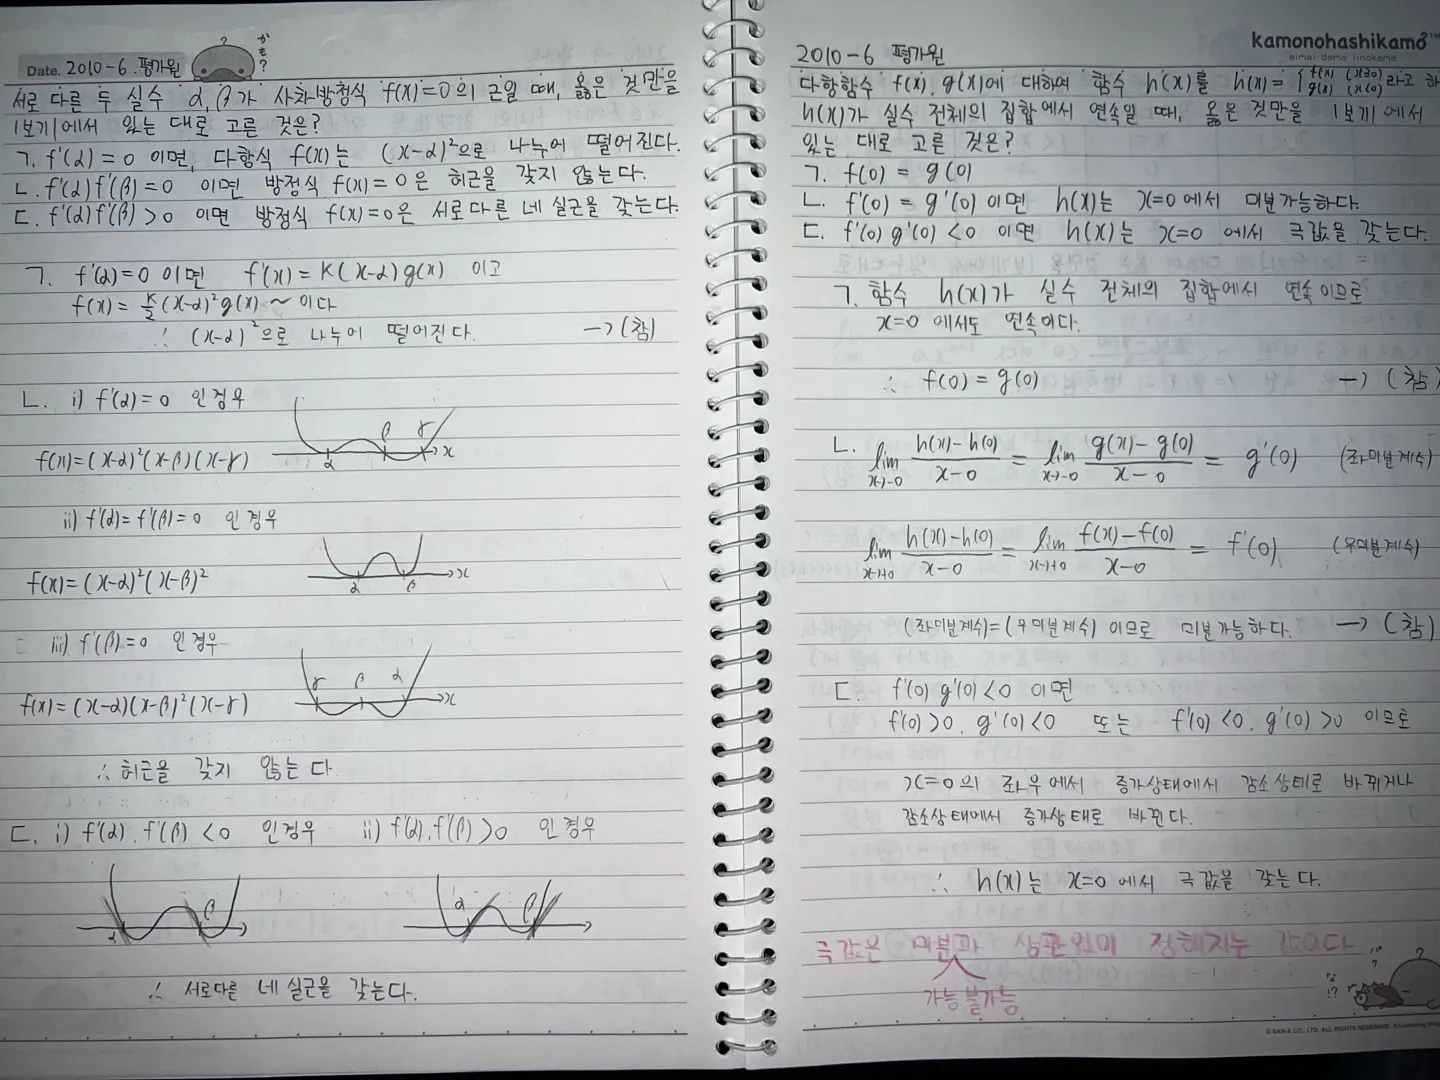 Date. 2010-6. 평가원
서로 다른 두 실수 α, β가 사차방정식 f(x)=0의 근일 때, 옳은 것만을
|보기|에서 있는 대로 고른 것은?
ㄱ. f'(α)=0 이면, 다항식 f(x)는 (x-α)²으로 나누어 떨어진다.
ㄴ. f'(α)f'(β)=0 이면 방정식 f(x)=0은 허근을 갖지 않는다.
ㄷ. f'(α)f'(β)>0 이면 방정식 f(x)=0은 서로다른 네 실근을 갖는다.
ㄱ. f'(α)=0 이면 f'(x)=K(x-α)g(x) 이고
f(x)=K/2(x-α)²g(x)~이다
∴ (x-α)²으로 나누어 떨어진다. →(참)
ㄴ. i) f'(α)=0 인경우
β γ
α x
f(x)=(x-α)²(x-β)(x-γ)
ii) f'(α)=f'(β)=0 인경우
f(x)=(x-α)²(x-β)²
α β x
iii) f'(β)=0 인경우
γ β α
x
f(x)=(x-α)(x-β)²(x-γ)
∴ 허근을 갖지 않는다.
ㄷ. i) f'(α).f'(β)<0 인경우 ii) f'(α).f'(β)>0 인경우
α β
α β
∴ 서로다른 네 실근을 갖는다.
kamonohashikamo™
aimai demo iinokamo
2010-6 평가원
다항함수 f(x), g(x)에 대하여 함수 h(x)를 h(x)={f(x) (x≥0) g(x) (x<0) 라고 하
h(x)가 실수 전체의 집합에서 연속일 때, 옳은 것만을 |보기|에서
있는 대로 고른 것은?
ㄱ. f(0)=g(0)
ㄴ. f'(0)=g'(0)이면 h(x)는 x=0에서 미분가능하다.
ㄷ. f'(0)g'(0)<0 이면 h(x)는 x=0 에서 극값을 갖는다.
ㄱ. 함수 h(x)가 실수 전체의 집합에서 연속이므로
x=0 에서도 연속이다.
∴ f(0)=g(0) →(참)
ㄴ. lim x→-0 h(x)-h(0)/x-0 = lim x→-0 g(x)-g(0)/x-0 = g'(0) (좌미분계수)
lim x→+0 h(x)-h(0)/x-0 = lim x→+0 f(x)-f(0)/x-0 = f'(0) (우미분계수)
(좌미분계수)=(우미분계수) 이므로 미분가능하다. →(참)
ㄷ. f'(0)g'(0)<0 이면
f'(0)>0, g'(0)<0 또는 f'(0)<0, g'(0)>0 이므로
x=0의 좌우에서 증가상태에서 감소상태로 바뀌거나
감소상태에서 증가상태로 바뀐다.
∴ h(x)는 x=0 에서 극값을 갖는다.
극값은 미분과 상관없이 정해지는 값이다
가능 불가능